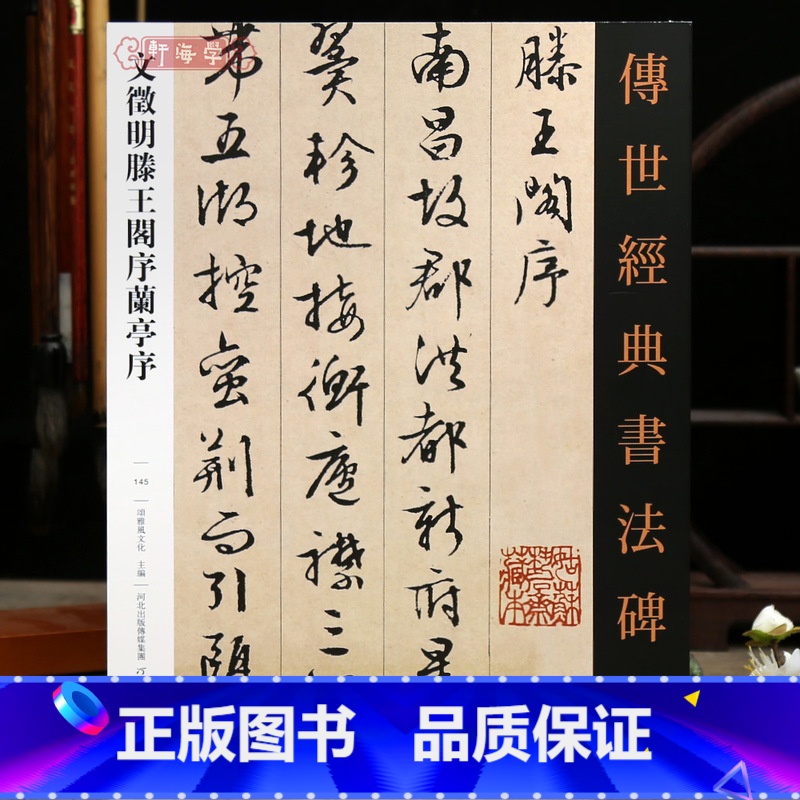 軒海學
文徵明滕王閣序蘭亭序
145
頌雅風文化 主編
河北出版傳媒集團
傳世經典書法碑
滕王閣序
南昌故郡洪都新府星
翼軫地接衡廬襟三
帶五湖控蠻荆而引甌
正版图书 品质保证